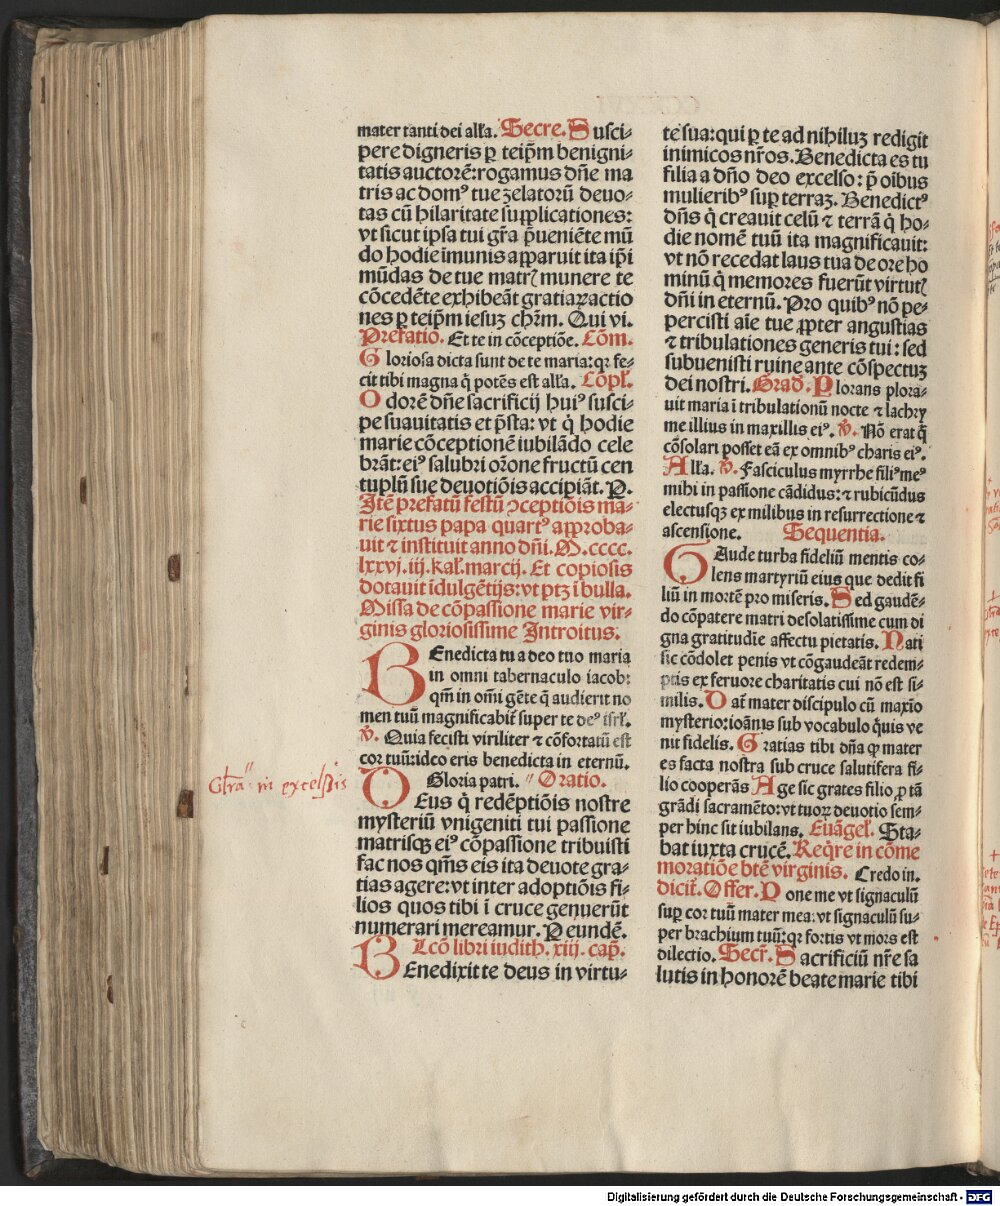 mater tanti dei all'a. Secre. Susci-
pere digneris ꝑ teip̄m benigni-
tatis auctorē: rogamus dn̄e ma
tris ac domꝰ tue zelatorū deuo-
tas cū hilaritate supplicationes:
vt sicut ipsa tui gr̄a p̄ueniēte mū
do hodie īmunis apparuit ita ip̄i
mūdas de tue matrꝭ munere te
cōcedēte exhibeāt gratiaꝝ actio
nes ꝑ teip̄m iesuꝫ chr̄m. Qui vi.
Prefatio. Et te in cōceptiōe. Cōm.
Gloriosa dicta sunt de te maria: qꝛ fe-
cit tibi magna q̄ potēs est all'a. Cōpl̄.
Odorē dn̄e sacrificij huiꝰ susci-
pe suauitatis et p̄sta: vt q̇ hodie
marie cōceptionē iubilādo cele
brāt: eiꝰ salubri or̄one fructū cen
tuplū sue deuotiōis accipiāt. P.
Itē prefatū festū ↄceptiōis ma-
rie sixtus papa quartꝰ approba-
uit ⁊ instituit anno dn̄i. M. cccc.
lxxvj. iij. kal̄. marcij. Et copiosis
dotauit īdulgētijs: vt ptꝫ ī bulla.
Missa de cōpassione marie vir-
ginis gloriosissime Introitus.
Benedicta tu a deo tuo maria
in omni tabernaculo iacob:
qm̄ in om̄i gēte q̄ audierit no
men tuū magnificabit̄ super te deꝰ isrl̄.
V̄. Quia fecisti viriliter ⁊ cōfortatū est
cor tuū: ideo eris benedicta in eternū.
Gloria patri. " Oratio.
Gl̄ra " in excelsis
Deus q̇ redēptiōis nostre
mysteriū vnigeniti tui passione
matrisqꝫ eiꝰ cōpassione tribuisti
fac nos qm̄s eis ita deuote gra-
tias agere: vt inter adoptiōis fi-
lios quos tibi ī cruce genuerūt
numerari mereamur. P eundē.
Lcō libri iudith. xiij. cap̄.
Benedixit te deus in virtu-
te sua: qui ꝑ te ad nihiluꝫ redigit
inimicos nr̄os. Benedicta es tu
filia a dn̄o deo excelso: p̄ oībus
mulieribꝰ suꝑ terraꝫ. Benedictꝰ
dn̄s q̇ creauit celū ⁊ terrā q̇ ho-
die nomē tuū ita magnificauit:
vt nō recedat laus tua de ore ho
minū q̇ memores fuerūt virtutꝭ
dn̄i in eternū. Pro quibꝰ nō pe-
percisti aīe tue ꝓpter angustias
⁊ tribulationes generis tui: sed
subuenisti ruine ante cōspectuꝫ
dei nostri. Grad̄. Plorans plora-
uit maria ī tribulationū nocte ⁊ lachry
me illius in maxillis eiꝰ. V̄. Nō erat q̇
cōsolari posset eā ex omnibꝰ charis eiꝰ.
All'a. V̄. Fasciculus myrrhe filiꝰ meꝰ
mihi in passione cādidus: ⁊ rubicūdus
electusqꝫ ex milibus in resurrectione ⁊
ascensione. Sequentia.
Gaude turba fideliū mentis co-
lens martyriū eius que dedit fi
liū in mortē pro miseris. Sed gaudē-
do cōpatere matri desolatissime cum di
gna gratitudīe affectu pietatis. Nati
sic cōdolet penis vt cōgaudeāt redem-
ptis ex feruore charitatis cui nō est si-
milis. Dat̄ mater discipulo cū maxīo
mysterio: ioānis sub vocabulo q̇uis ve
nit fidelis. Gratias tibi dn̄a qꝫ mater
es facta nostra sub cruce salutifera fi-
lio cooperās Age sic grates filio ꝓ tā
grādi sacramēto: vt tuoꝝ deuotio sem-
per hinc sit iubilans. Euāgel̄. Sta-
bat iuxta crucē. Reqr̄e in cōme
moratiōe btē virginis. Credo in.
dicit̄. Offer. Pone me vt signaculū
suꝑ cor tuū mater mea: vt signaculū su-
per brachium tuū: qꝛ fortis vt mors est
dilectio. Secr̄. Sacrificiū nr̄e sa
lutis in honorē beate marie tibi
Digitalisierung gefördert durch die Deutsche Forschungsgemeinschaft - DFG